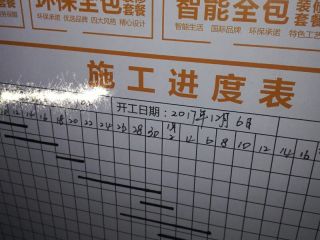 环保全包 装修套餐
环保承诺 优选品牌 四大风格 精心设计
智能全包 装修套餐
智能生活 国际品牌 环保承诺 特色工艺
施工进度表
开工日期：2017年12月6日
16 18 20 22 24 26 28 30 2 4 6 8 10 12 14 16